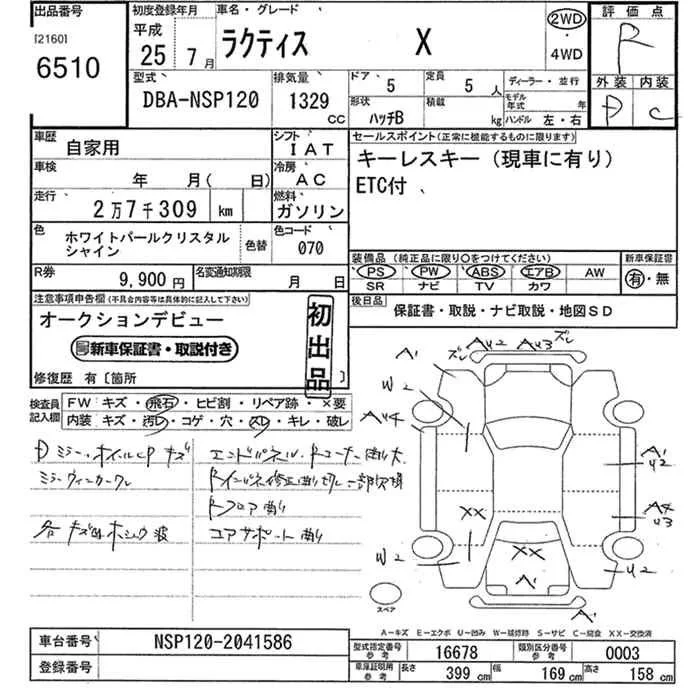 出品番号
[2160]
6510
初度登録年月
平成
25年 7月
車名・グレード
ラクティス X
2WD
・
4WD
評価点
R
外装 内装
D C
型式
DBA-NSP120
排気量
1329
CC
ドア 5
定員 5人
形状 ハッチB
積載 kg
ディーラー・並行
モデル年式 年
ハンドル 左・右
車歴
自家用
シフト
IAT
車検
年 月( 日)
冷房
AC
走行
2万7千309 km
燃料
ガソリン
色
ホワイトパールクリスタル
シャイン
色替
色コード
070
R券
9,900円
名変通知期限
月 日
セールスポイント(正常に機能するものに限ります)
キーレスキー(現車に有り)
ETC付、
装備品(純正品に限り○をつけてください)
PS PW ABS エアB AW
SR ナビ TV カワ
新車保証書
有・無
後日品
保証書・取説・ナビ取説・地図SD
注意事項申告欄(不具合内容等は具体的に記入して下さい)
オークションデビュー
新車保証書・取説付き
初出品
修復歴 有〔箇所 〕
検査員記入欄
FW キズ・飛石・ヒビ割・リペア跡・×要
内装 キズ・汚レ・コゲ・穴・スレ・キレ・破レ
Dミラー、ホイルCPキズ
ミラーウィンカーワレ
各キズ凹ホシュウ波
エンドパネル・Rコーナー曲り大
Rフロア曲り
コアサポート曲り
A1
ズレ
AU2
AU3
ズレ
W2
AU4
A1
U2
XX
A4
U3
W2
XX
A1
U2
A1
スペア
A-キズ E-エクボ U-凹み W-補修跡 S-サビ C-腐食 XX-交換済
車台番号
NSP120-2041586
登録番号
型式指定番号
参考
16678
類別区分番号
参考
0003
車庫証明用
参考
長さ 399 cm
幅 169 cm
高さ 158 cm